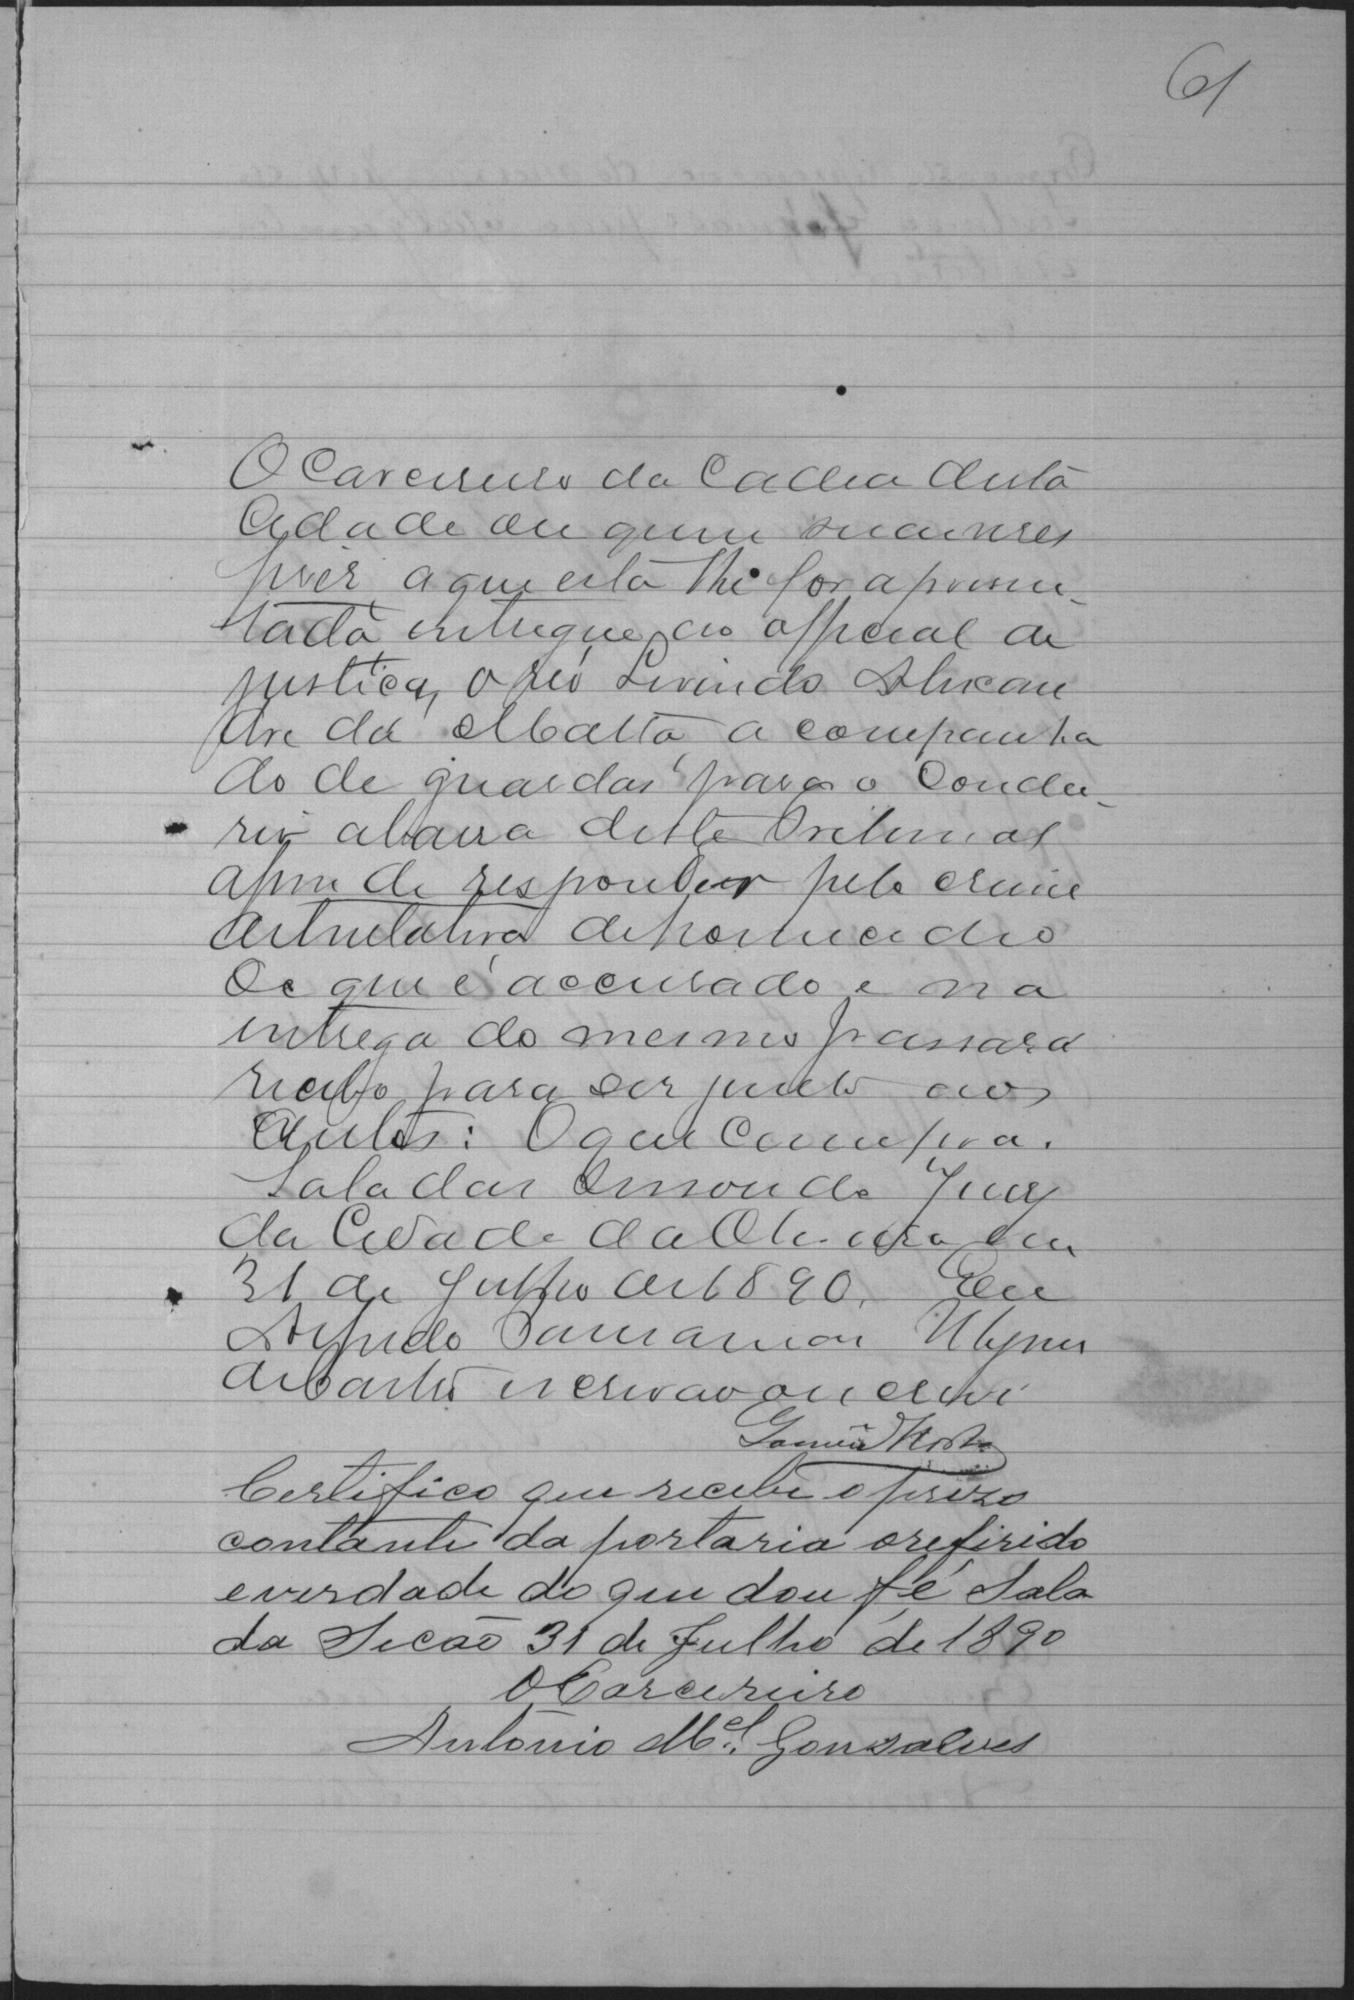 61
O Carcereiro da Cadea desta
Cidade ou quem suas vezes
fizer, a quem esta lhe for apresen-
tada, entregue ao official de
justiça, o réo Livindo Alexan
dre da Matta, acompanha
do de guardas para o Condu-
zir a barra deste Tribunal
afim de responder pelo crime
de tentativa de homicidio
de que é accusado e na
entrega do mesmo passará
recibo para ser junto aos
Autos: O que Cumpra.
Sala das Sessoens do Jury
da Cidade da Oliveira em
31 de Julho de 1890. Eu
Alfredo
de Castro escrivão que escrevi
Certifico que recebi o prezo
contante da portaria o refirido
e verdade do que dou fé Sala
da Secão 31 de Julho de 1890
O Carcereiro
Antônio Mel. Gonsalves